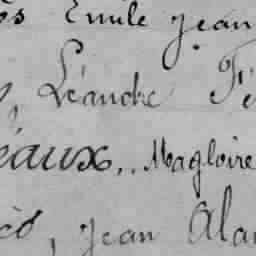 Emile Jean
, Léandre
éaux, Magloire
, Jean Alan